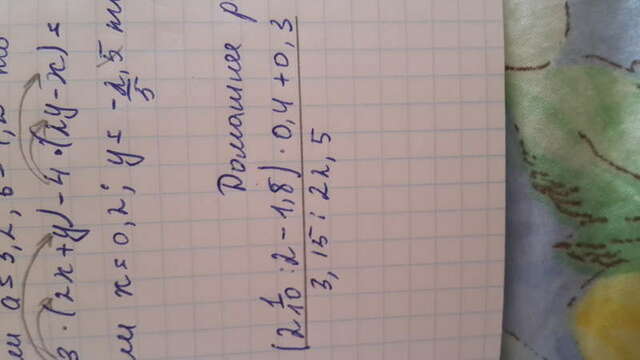 3·(2x+y)-4·(2y-x)=
x=0,2; y=
Домашнее р
(2 1/10 : 2 - 1,8) · 0,4 + 0,3
3,15 : 22,5